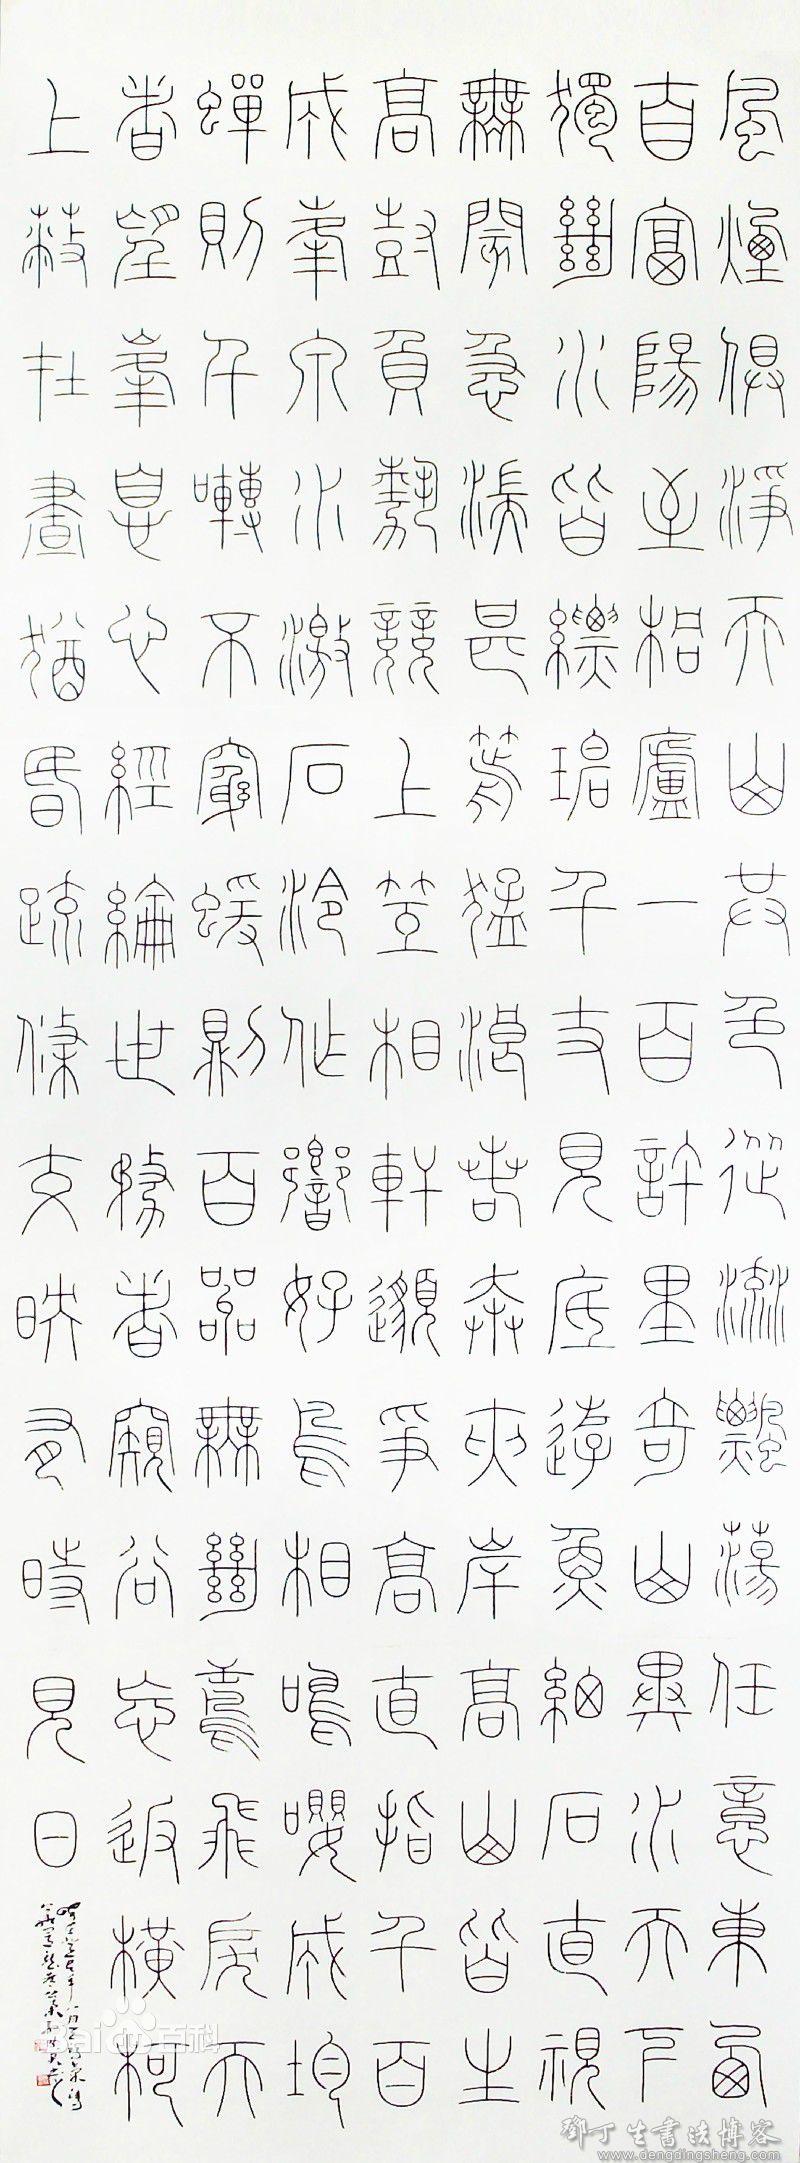 風煙俱淨天山共色從流飄蕩任意東西
自富陽至桐廬一百許里奇山異水天下
獨絕水皆縹碧千丈見底游魚細石直視
無閡急湍甚箭猛浪若奔夾岸高山皆生
高尌負勢競上笠相軒邈爭高直指千百
成峯泉水激石泠作響好鳥相鳴嚶成均
蟬則千囀不窮蝯則百無絕鳶飛戾天
者望峯息心經綸世務者窺谷忘返橫柯
上蔽在晝猶昏疏條交映有時見日
Baidu百科
鄧丁生書法博客
www.dengdingsheng.com